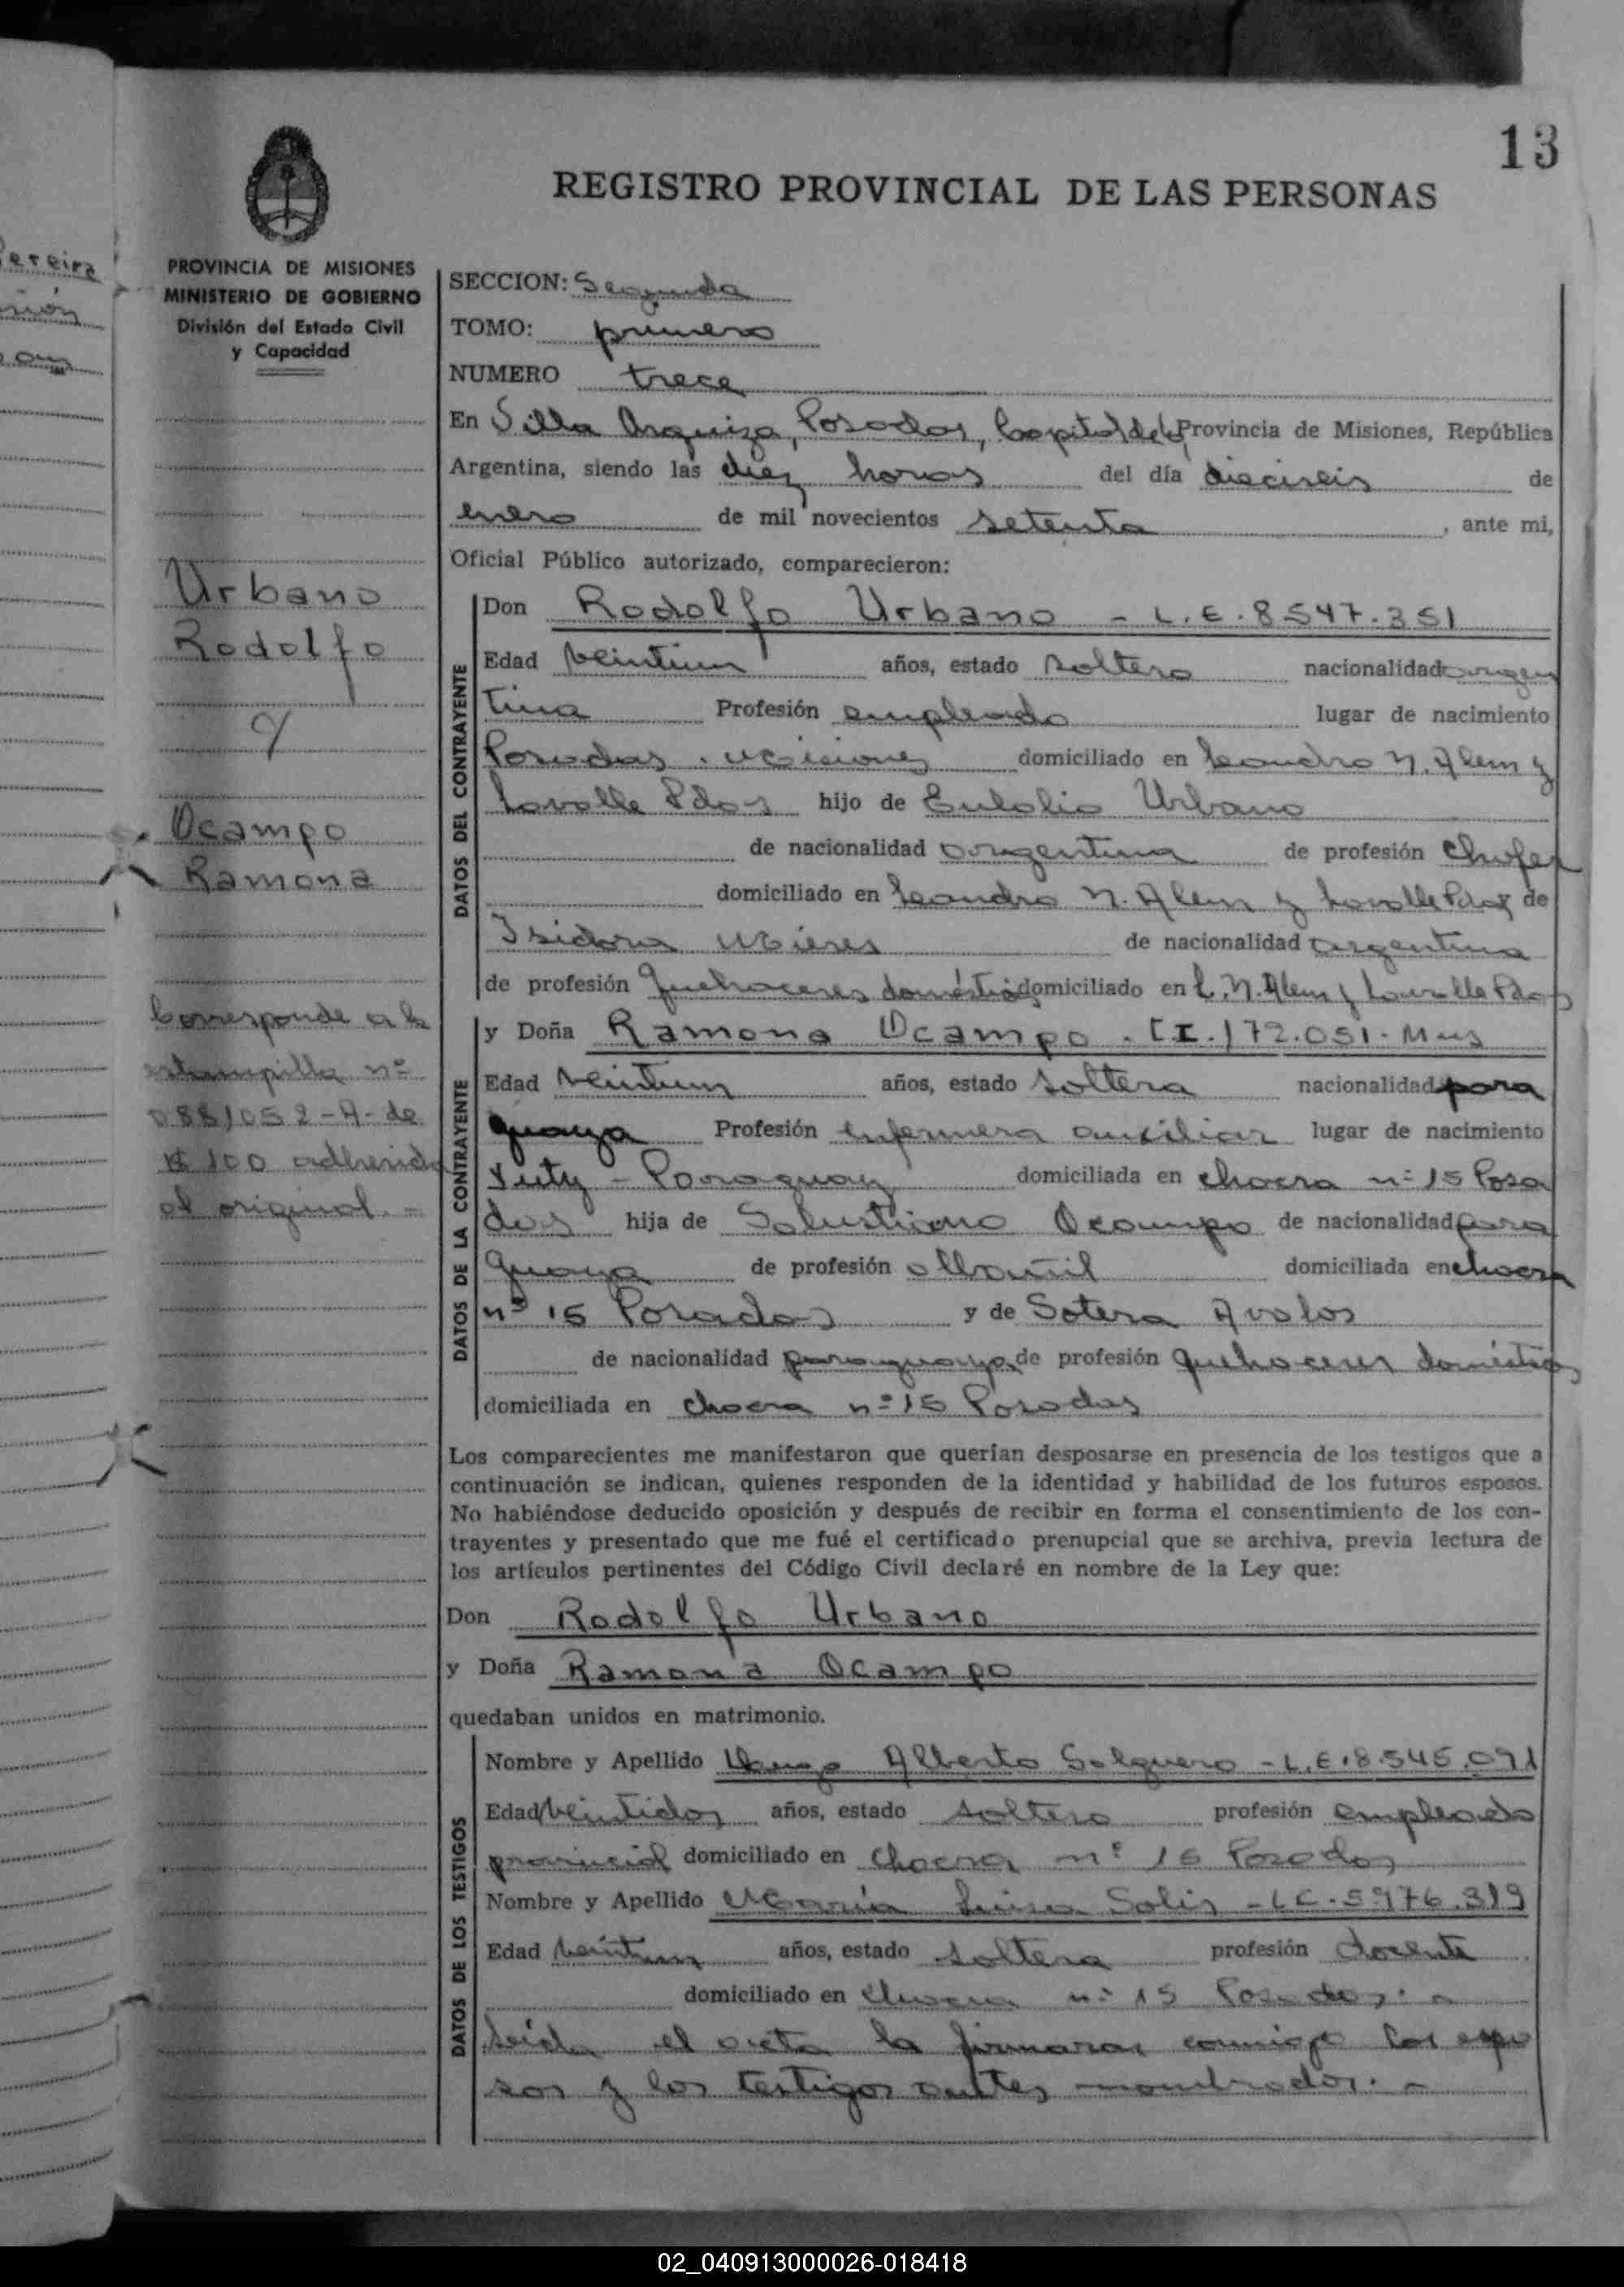 13
REGISTRO PROVINCIAL DE LAS PERSONAS
PROVINCIA DE MISIONES
MINISTERIO DE GOBIERNO
División del Estado Civil
y Capacidad
Urbano
Rodolfo
y
Ocampo
Ramona
Corresponde a la
estampilla nº
0881052-A-de
$ 100 adherida
al original.-
SECCION: Segunda
TOMO: primero
NUMERO trece
En Villa Urquiza, Posadas, Capital de la Provincia de Misiones, República
Argentina, siendo las diez horas del día dieciseis de
enero de mil novecientos setenta, ante mi,
Oficial Público autorizado, comparecieron:
DATOS DEL CONTRAYENTE
Don Rodolfo Urbano - L.E. 8.547.351
Edad veintiun años, estado soltero nacionalidad argen
tina Profesión empleado lugar de nacimiento
Posadas. Misiones domiciliado en Leandro N. Alem y
Lavalle Pdas hijo de Eulolio Urbano
de nacionalidad argentina de profesión Chofer
domiciliado en Leandro N. Alem y Lavalle Pdas y de
Isidora Mieres de nacionalidad argentina
de profesión quehaceres domésticos domiciliado en L. N. Alem y Lavalle Pdas
DATOS DE LA CONTRAYENTE
y Doña Ramona Ocampo. C.I. 172.051. Mnes
Edad veintiun años, estado soltera nacionalidad para
guaya Profesión enfermera auxiliar lugar de nacimiento
Yuty - Paraguay domiciliada en chacra nº 15 Posa
das hija de Salustiano Ocampo de nacionalidad para
guaya de profesión albañil domiciliada en chacra
nº 15 Posadas y de Sotera Avalos
de nacionalidad paraguaya de profesión quehaceres domésticos
domiciliada en chacra nº 15 Posadas
Los comparecientes me manifestaron que querían desposarse en presencia de los testigos que a
continuación se indican, quienes responden de la identidad y habilidad de los futuros esposos.
No habiéndose deducido oposición y después de recibir en forma el consentimiento de los con-
trayentes y presentado que me fué el certificado prenupcial que se archiva, previa lectura de
los artículos pertinentes del Código Civil declaré en nombre de la Ley que:
Don Rodolfo Urbano
y Doña Ramona Ocampo
quedaban unidos en matrimonio.
DATOS DE LOS TESTIGOS
Nombre y Apellido Hugo Alberto Salguero - L.E. 8.545.091
Edad veintidos años, estado soltero profesión empleado
provincial domiciliado en Chacra nº 16 Posadas
Nombre y Apellido María Luisa Solis - LC. 5.976.319
Edad veintiun años, estado soltera profesión docente
domiciliado en Chacra nº 15 Posadas. -
Leida el acta la firmaron conmigo los espo
sos y los testigos antes nombrados. -
02_040913000026-018418